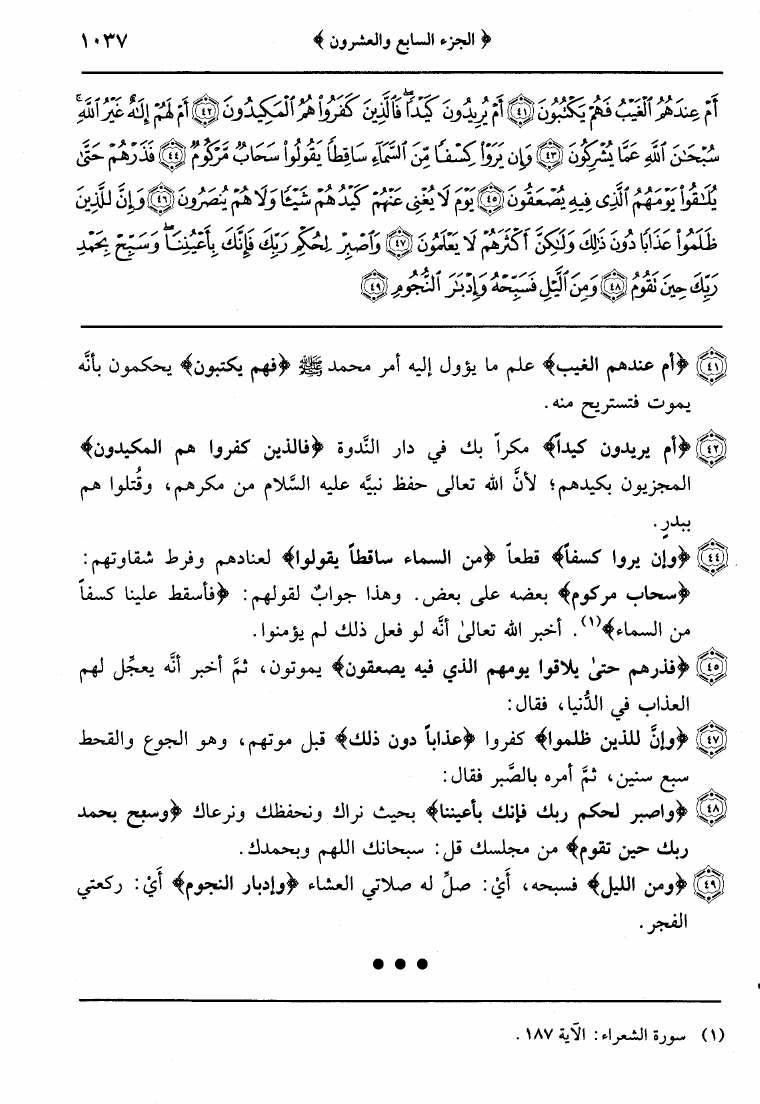 ﴿ الجزء السابع والعشرون ﴾ ١٠٣٧
أَمْ عِندَهُمُ ٱلْغَيْبُ فَهُمْ يَكْتُبُونَ ٤١ أَمْ يُرِيدُونَ كَيْدًا ۖ فَٱلَّذِينَ كَفَرُوا۟ هُمُ ٱلْمَكِيدُونَ ٤٢ أَمْ لَهُمْ إِلَٰهٌ غَيْرُ ٱللَّهِ ۚ
سُبْحَٰنَ ٱللَّهِ عَمَّا يُشْرِكُونَ ٤٣ وَإِن يَرَوْا۟ كِسْفًا مِّنَ ٱلسَّمَآءِ سَاقِطًا يَقُولُوا۟ سَحَابٌ مَّرْكُومٌ ٤٤ فَذَرْهُمْ حَتَّىٰ
يُلَٰقُوا۟ يَوْمَهُمُ ٱلَّذِى فِيهِ يُصْعَقُونَ ٤٥ يَوْمَ لَا يُغْنِى عَنْهُمْ كَيْدُهُمْ شَيْـًٔا وَلَا هُمْ يُنصَرُونَ ٤٦ وَإِنَّ لِلَّذِينَ
ظَلَمُوا۟ عَذَابًا دُونَ ذَٰلِكَ وَلَٰكِنَّ أَكْثَرَهُمْ لَا يَعْلَمُونَ ٤٧ وَٱصْبِرْ لِحُكْمِ رَبِّكَ فَإِنَّكَ بِأَعْيُنِنَا ۖ وَسَبِّحْ بِحَمْدِ
رَبِّكَ حِينَ تَقُومُ ٤٨ وَمِنَ ٱلَّيْلِ فَسَبِّحْهُ وَإِدْبَٰرَ ٱلنُّجُومِ ٤٩
٤١ ﴿أم عندهم الغيب﴾ علم ما يؤول إليه أمر محمد ﷺ ﴿فهم يكتبون﴾ يحكمون بأنَّه
يموت فتستريح منه.
٤٢ ﴿أم يريدون كيداً﴾ مكراً بك في دار النَّدوة ﴿فالذين كفروا هم المكيدون﴾
المجزيون بكيدهم؛ لأنَّ الله تعالى حفظ نبيَّه عليه السَّلام من مكرهم، وقُتلوا هم
ببدرٍ.
٤٤ ﴿وإن يروا كسفاً﴾ قطعاً ﴿من السماء ساقطاً يقولوا﴾ لعنادهم وفرط شقاوتهم:
﴿سحاب مركوم﴾ بعضه على بعض. وهذا جوابٌ لقولهم: ﴿فأسقط علينا كسفاً
من السماء﴾(١). أخبر الله تعالىٰ أنَّه لو فعل ذلك لم يؤمنوا.
٤٥ ﴿فذرهم حتىٰ يلاقوا يومهم الذي فيه يصعقون﴾ يموتون، ثمَّ أخبر أنَّه يعجِّل لهم
العذاب في الدُّنيا، فقال:
٤٧ ﴿وإنَّ للذين ظلموا﴾ كفروا ﴿عذاباً دون ذلك﴾ قبل موتهم، وهو الجوع والقحط
سبع سنين، ثمَّ أمره بالصَّبر فقال:
٤٨ ﴿واصبر لحكم ربك فإنك بأعيننا﴾ بحيث نراك ونحفظك ونرعاك ﴿وسبح بحمد
ربك حين تقوم﴾ من مجلسك قل: سبحانك اللهم وبحمدك.
٤٩ ﴿ومن الليل﴾ فسبحه، أَيْ: صلِّ له صلاتي العشاء ﴿وإدبار النجوم﴾ أَيْ: ركعتي
الفجر.
(١) سورة الشعراء: الآية ١٨٧.